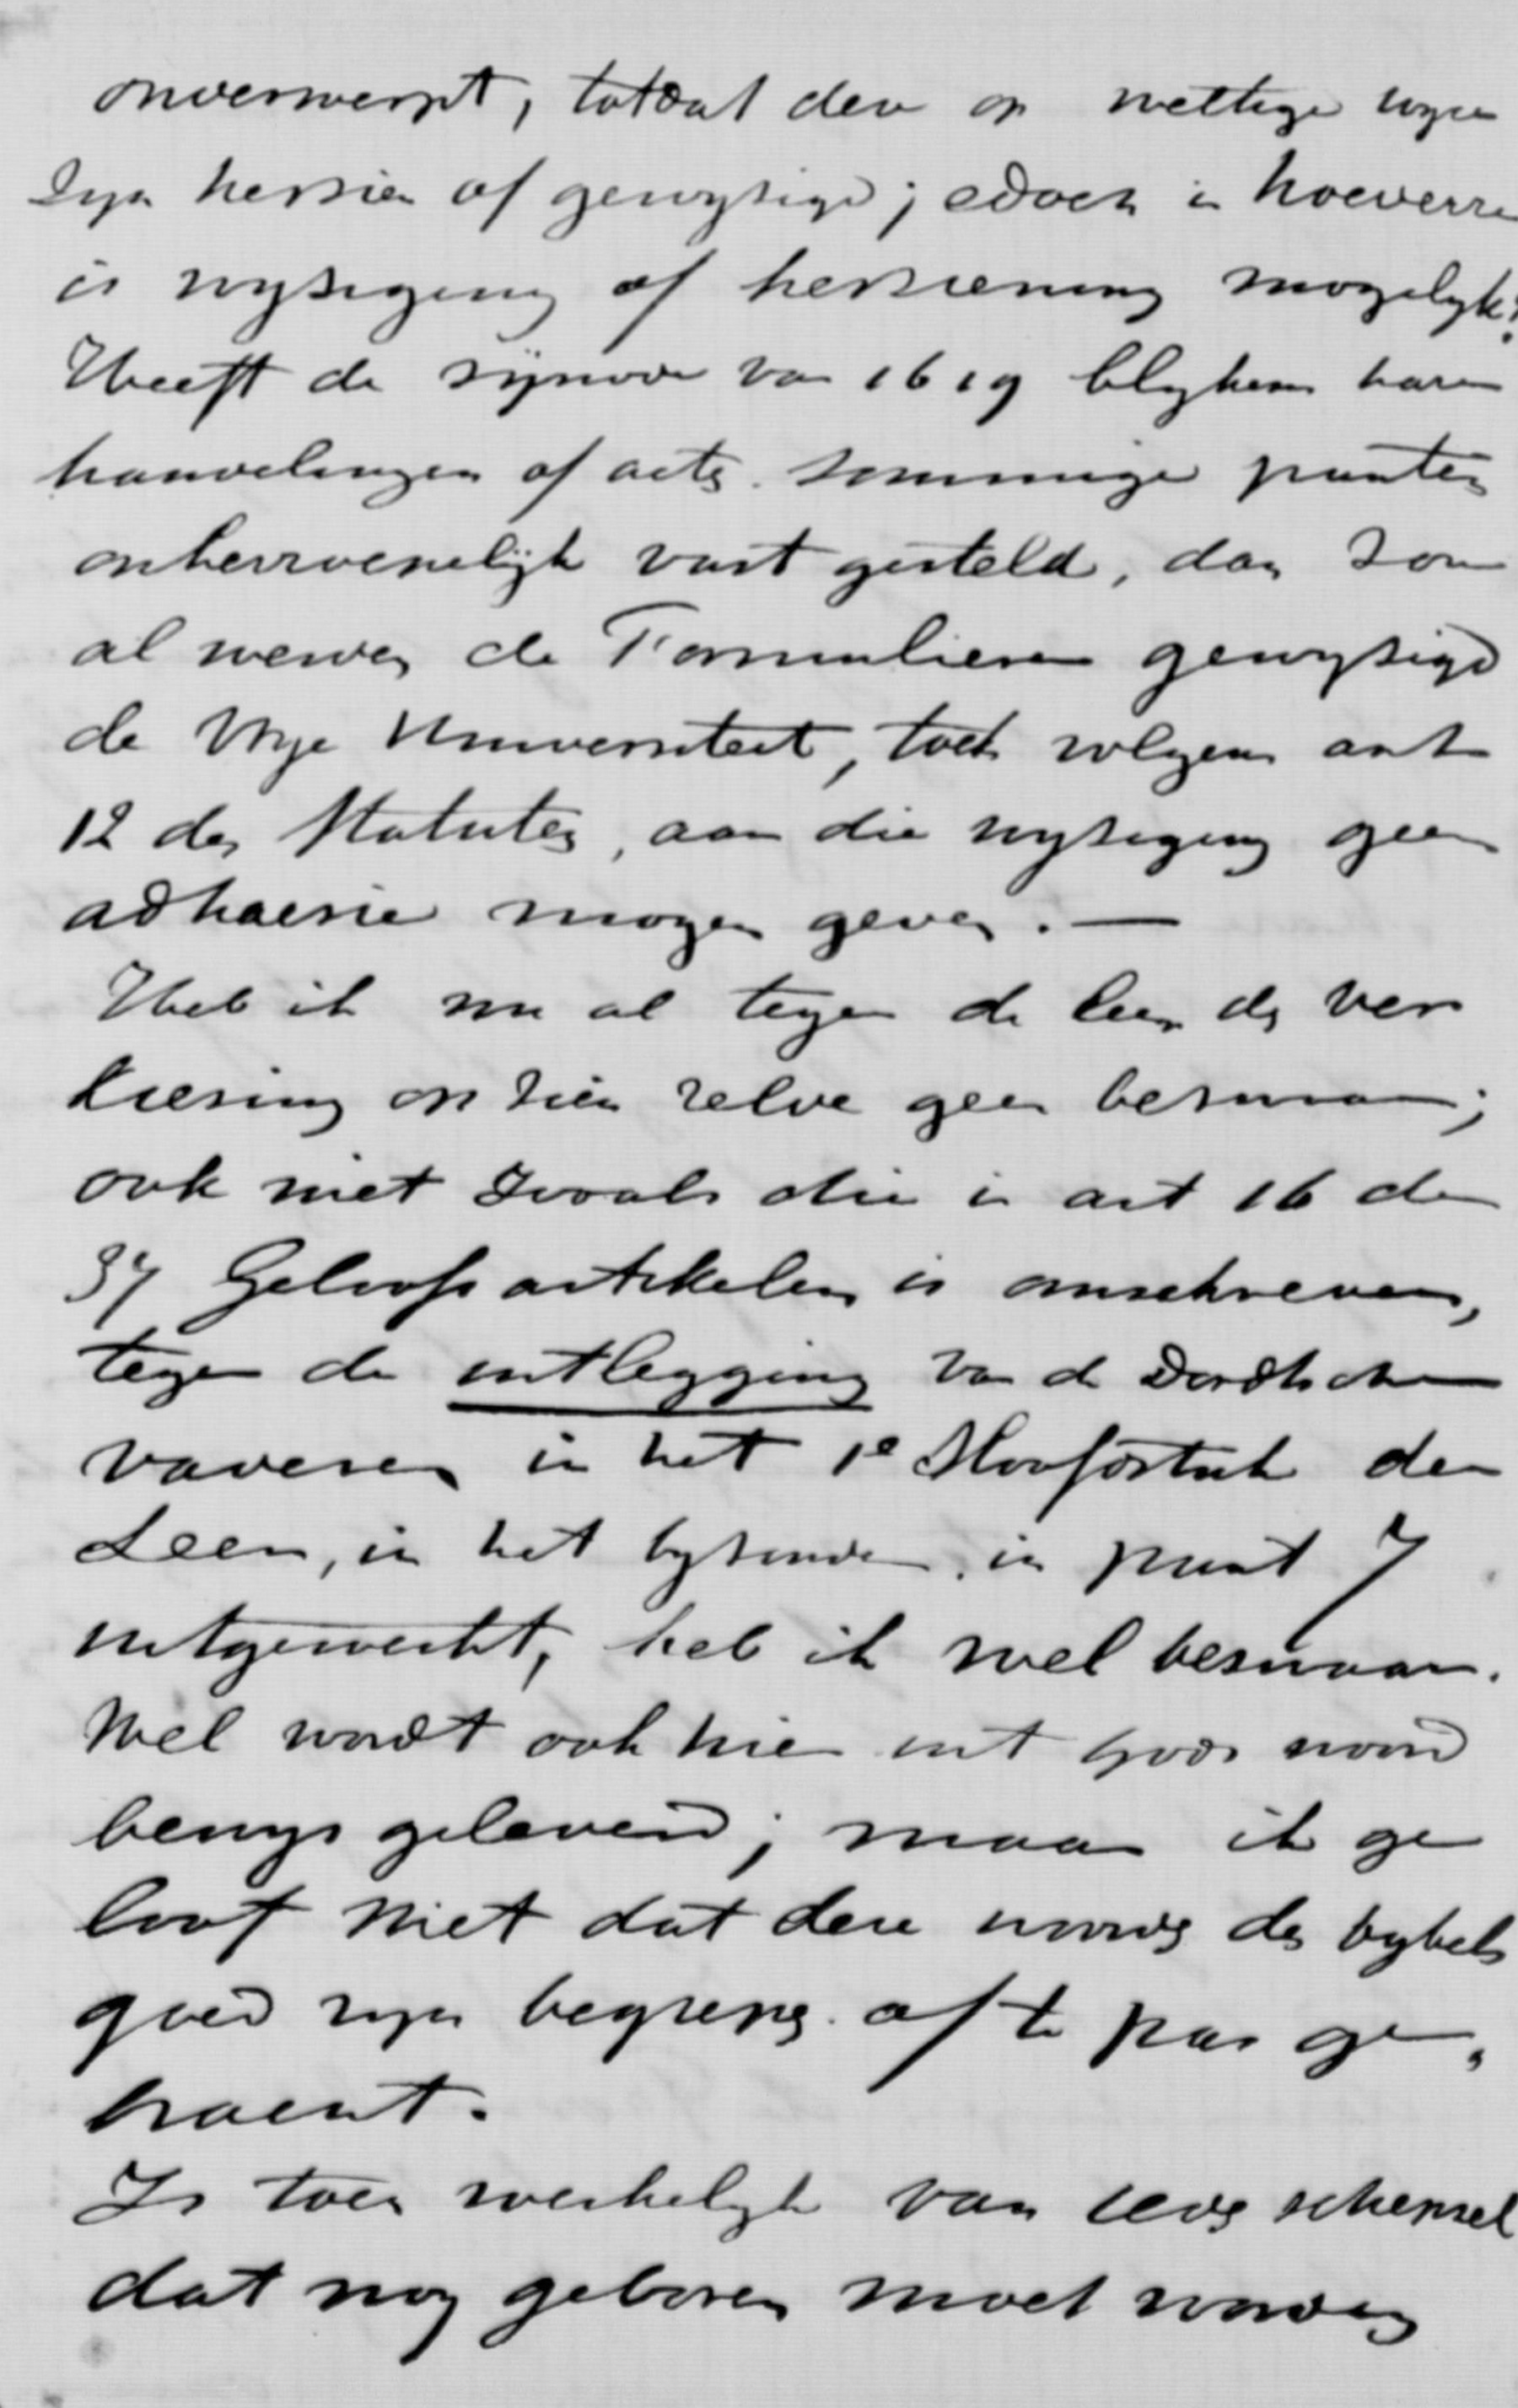 onverwerpt, totdat deze op wettige wyze
zyn herzien of gewyzigd; edoch in hoeverre
is wyziging of herziening mogelyk?
Heeft de synode van 1619 blykens hare
handelingen of acta sommige punten
onherroepelijk vast gesteld, dan zou
al werden de Formulieren gewyzigd
de Vrye Universiteit, toch volgens art
12 der Statuten, aan die wyziging geen
adhaesie mogen geven. —
Heb ik nu al tegen de leer der ver
kiezing op zich zelve geen bezwaar;
ook niet zooals die in art 16 der
37 Geloofsartikelen is omschreven,
tegen de uitlegging van de Dordtsche
vaderen in het 1e Hoofdstuk der
Leer, in het byzonder in punt 7
uitgewerkt, heb ik wel bezwaar.
Wel wordt ook hier uit Gods woord
bewys geleverd; maar ik ge
loof niet dat deze woorden des bybels
goed zyn begrepen of te pas ge,
bracht.
Is toch werkelyk van ieder schepsel
dat nog geboren moet worden